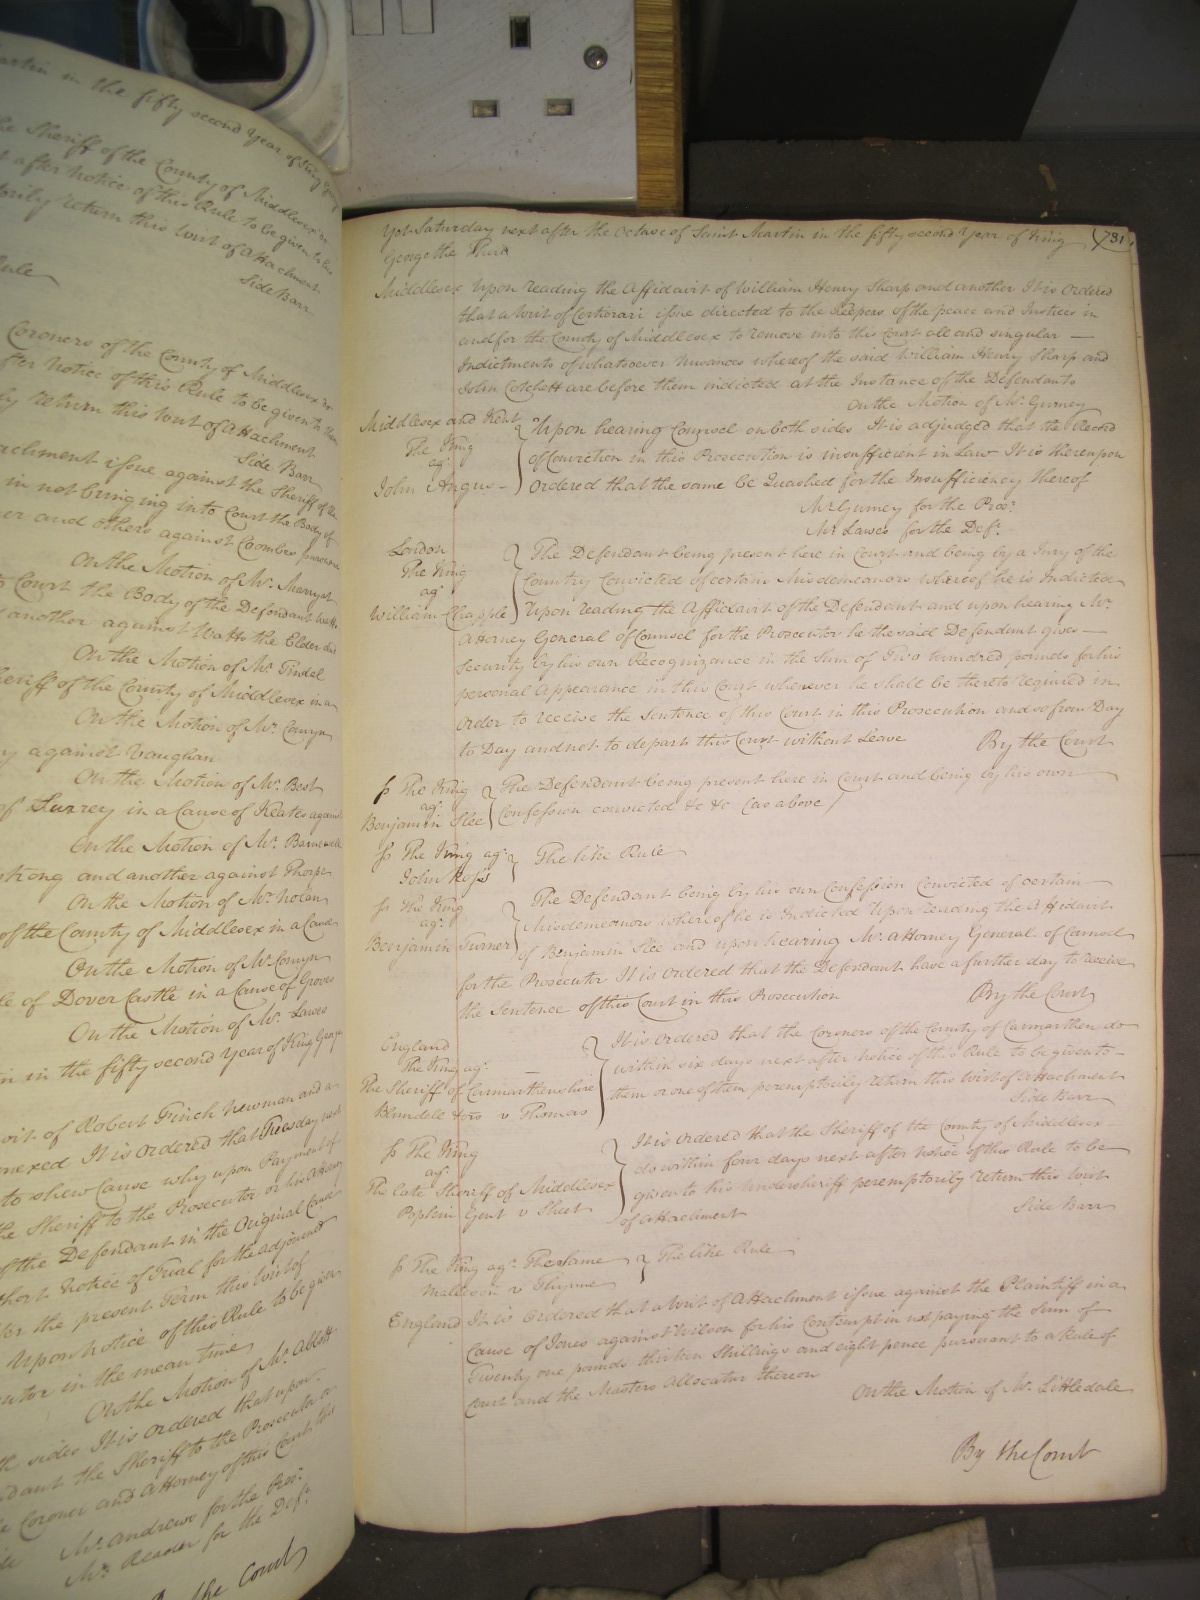 artin in the fifty second Year of King
he Sheriff of the County of Middlesex do
t after Notice of this Rule to be given to his
torily return this Writ of Attachment
Side Barr
Rule
Coroners of the County of Middlesex do
fter Notice of this Rule to be given to them
ly return this Writ of Attachment
Side Barr
achment issue against the Sheriff of the
in not bringing into Court the Body of
er and others against Coombes
On the Motion of Mr. Marryat
to Court the Body of the Defendant Watts
another against Watts the Elder and
On the Motion of Mr. Tindal
eriff of the County of Middlesex in a
On the Motion of Mr. Comyn
y against Vaughan
On the Motion of Mr. Best
of Surrey in a Cause of Keates against
On the Motion of Mr. Barnewall
strong and another against Thorpe
On the Motion of Mr. Nolan
of the County of Middlesex in a Cause
On the Motion of Mr. Comyn
le of Dover Castle in a Cause of Groves
On the Motion of Mr. Lawes
n in the fifty second Year of King George
vit of Robert Finch Newman and a
nexed It is Ordered that Tuesday next
to shew Cause why upon Payment of
the Sheriff to the Prosecutor or his Attorney
of the Defendant in the Original Cause
short Notice of Trial for the adjourned
for the present Term this Writ of
Upon Notice of this Rule to be given
cutor in the mean time
On the Motion of Mr. Abbott
th sides It is Ordered that upon
dant the Sheriff to the Prosecutor or
e Coroner and Attorney of this Court this
Mr. Andrews for the Pros.
Mr. Reader for the Def.
the Court
Yet Saturday next after the Octave of Saint Martin in the fifty second Year of King 731
George the Third
Middlesex Upon reading the Affidavit of William Henry Sharp and another It is Ordered
that a Writ of Certiorari issue directed to the Keepers of the peace and Justices in
and for the County of Middlesex to remove into this Court all and singular
Indictments of whatsoever Nusances whereof the said William Henry Sharp and
John Cotchett are before them indicted at the Instance of the Defendants
On the Motion of Mr. Gurney
Middlesex and Kent
The King
agt.
John Angus
Upon hearing Counsel on both sides It is adjudged that the Record
of Conviction in this Prosecution is insufficient in Law It is thereupon
Ordered that the same be Quashed for the Insufficiency thereof
Mr. Gurney for the Pros.
Mr. Lawes for the Def.
London
The King
agt.
William Chapple
The Defendant being present here in Court and being by a Jury of the
Country Convicted of certain Misdemeanors whereof he is Indicted
Upon reading the Affidavit of the Defendant and upon hearing Mr.
Attorney General of Counsel for the Prosecutor he the said Defendant gives
Security by his own Recognizance in the Sum of Two hundred pounds for his
personal Appearance in this Court whenever he shall be thereto required in
Order to receive the Sentence of this Court in this Prosecution and so from Day
to Day and not to depart this Court without Leave By the Court
The King
agt.
Benjamin Slee
The Defendant being present here in Court and being by his own
Confession convicted &c &c (as above)
The King agt.
John Ross
The like Rule
The King
agt.
Benjamin Turner
The Defendant being by his own Confession Convicted of certain
Misdemeanors whereof he is Indicted Upon reading the Affidavit
of Benjamin Slee and upon hearing Mr. Attorney General of Counsel
for the Prosecutor It is Ordered that the Defendant have a further day to receive
the Sentence of this Court in this Prosecution By the Court
England
The King agt.
The Sheriff of Carmarthenshire
Blundell & ors v Thomas
It is Ordered that the Coroners of the County of Carmarthen do
within six days next after notice of this Rule to be given to
them or one of them peremptorily return this Writ of Attachment
Side Barr
The King
agt.
The late Sheriff of Middlesex
Popkin Gent v Sheet
It is Ordered that the Sheriff of the County of Middlesex
do within four days next after notice of this Rule to be
given to his Undersheriff peremptorily return this Writ
of Attachment Side Barr
The King agt. The same
v Thynne
The like Rule
England It is Ordered that a Writ of Attachment issue against the Plaintiff in a
Cause of Jones against Wilson for his Contempt in not paying the Sum of
Twenty one pounds thirteen Shillings and eight pence pursuant to a Rule of
Court and the Masters Allocatur thereon
On the Motion of Mr. Littledale
By the Court